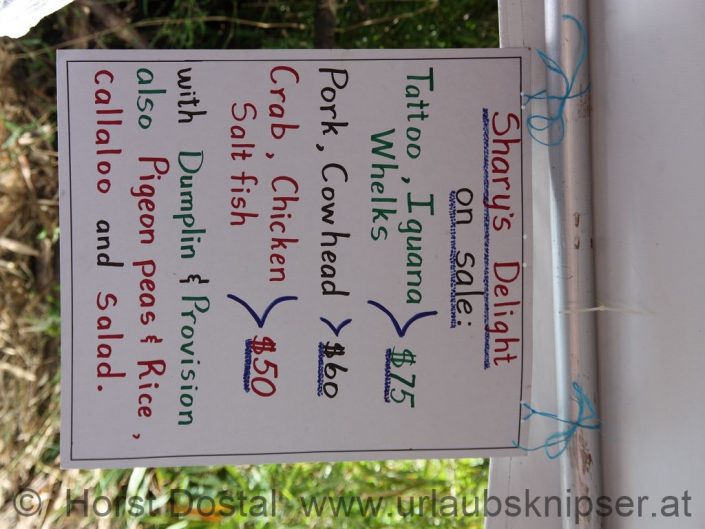 Shary's Delight
on sale:
Tattoo, Iguana
Whelks
$75
Pork, Cowhead $60
Crab, Chicken
Salt fish
$50
with Dumplin & Provision
also Pigeon peas & Rice,
callaloo and Salad.
© Horst Dostal www.urlaubsknipser.at